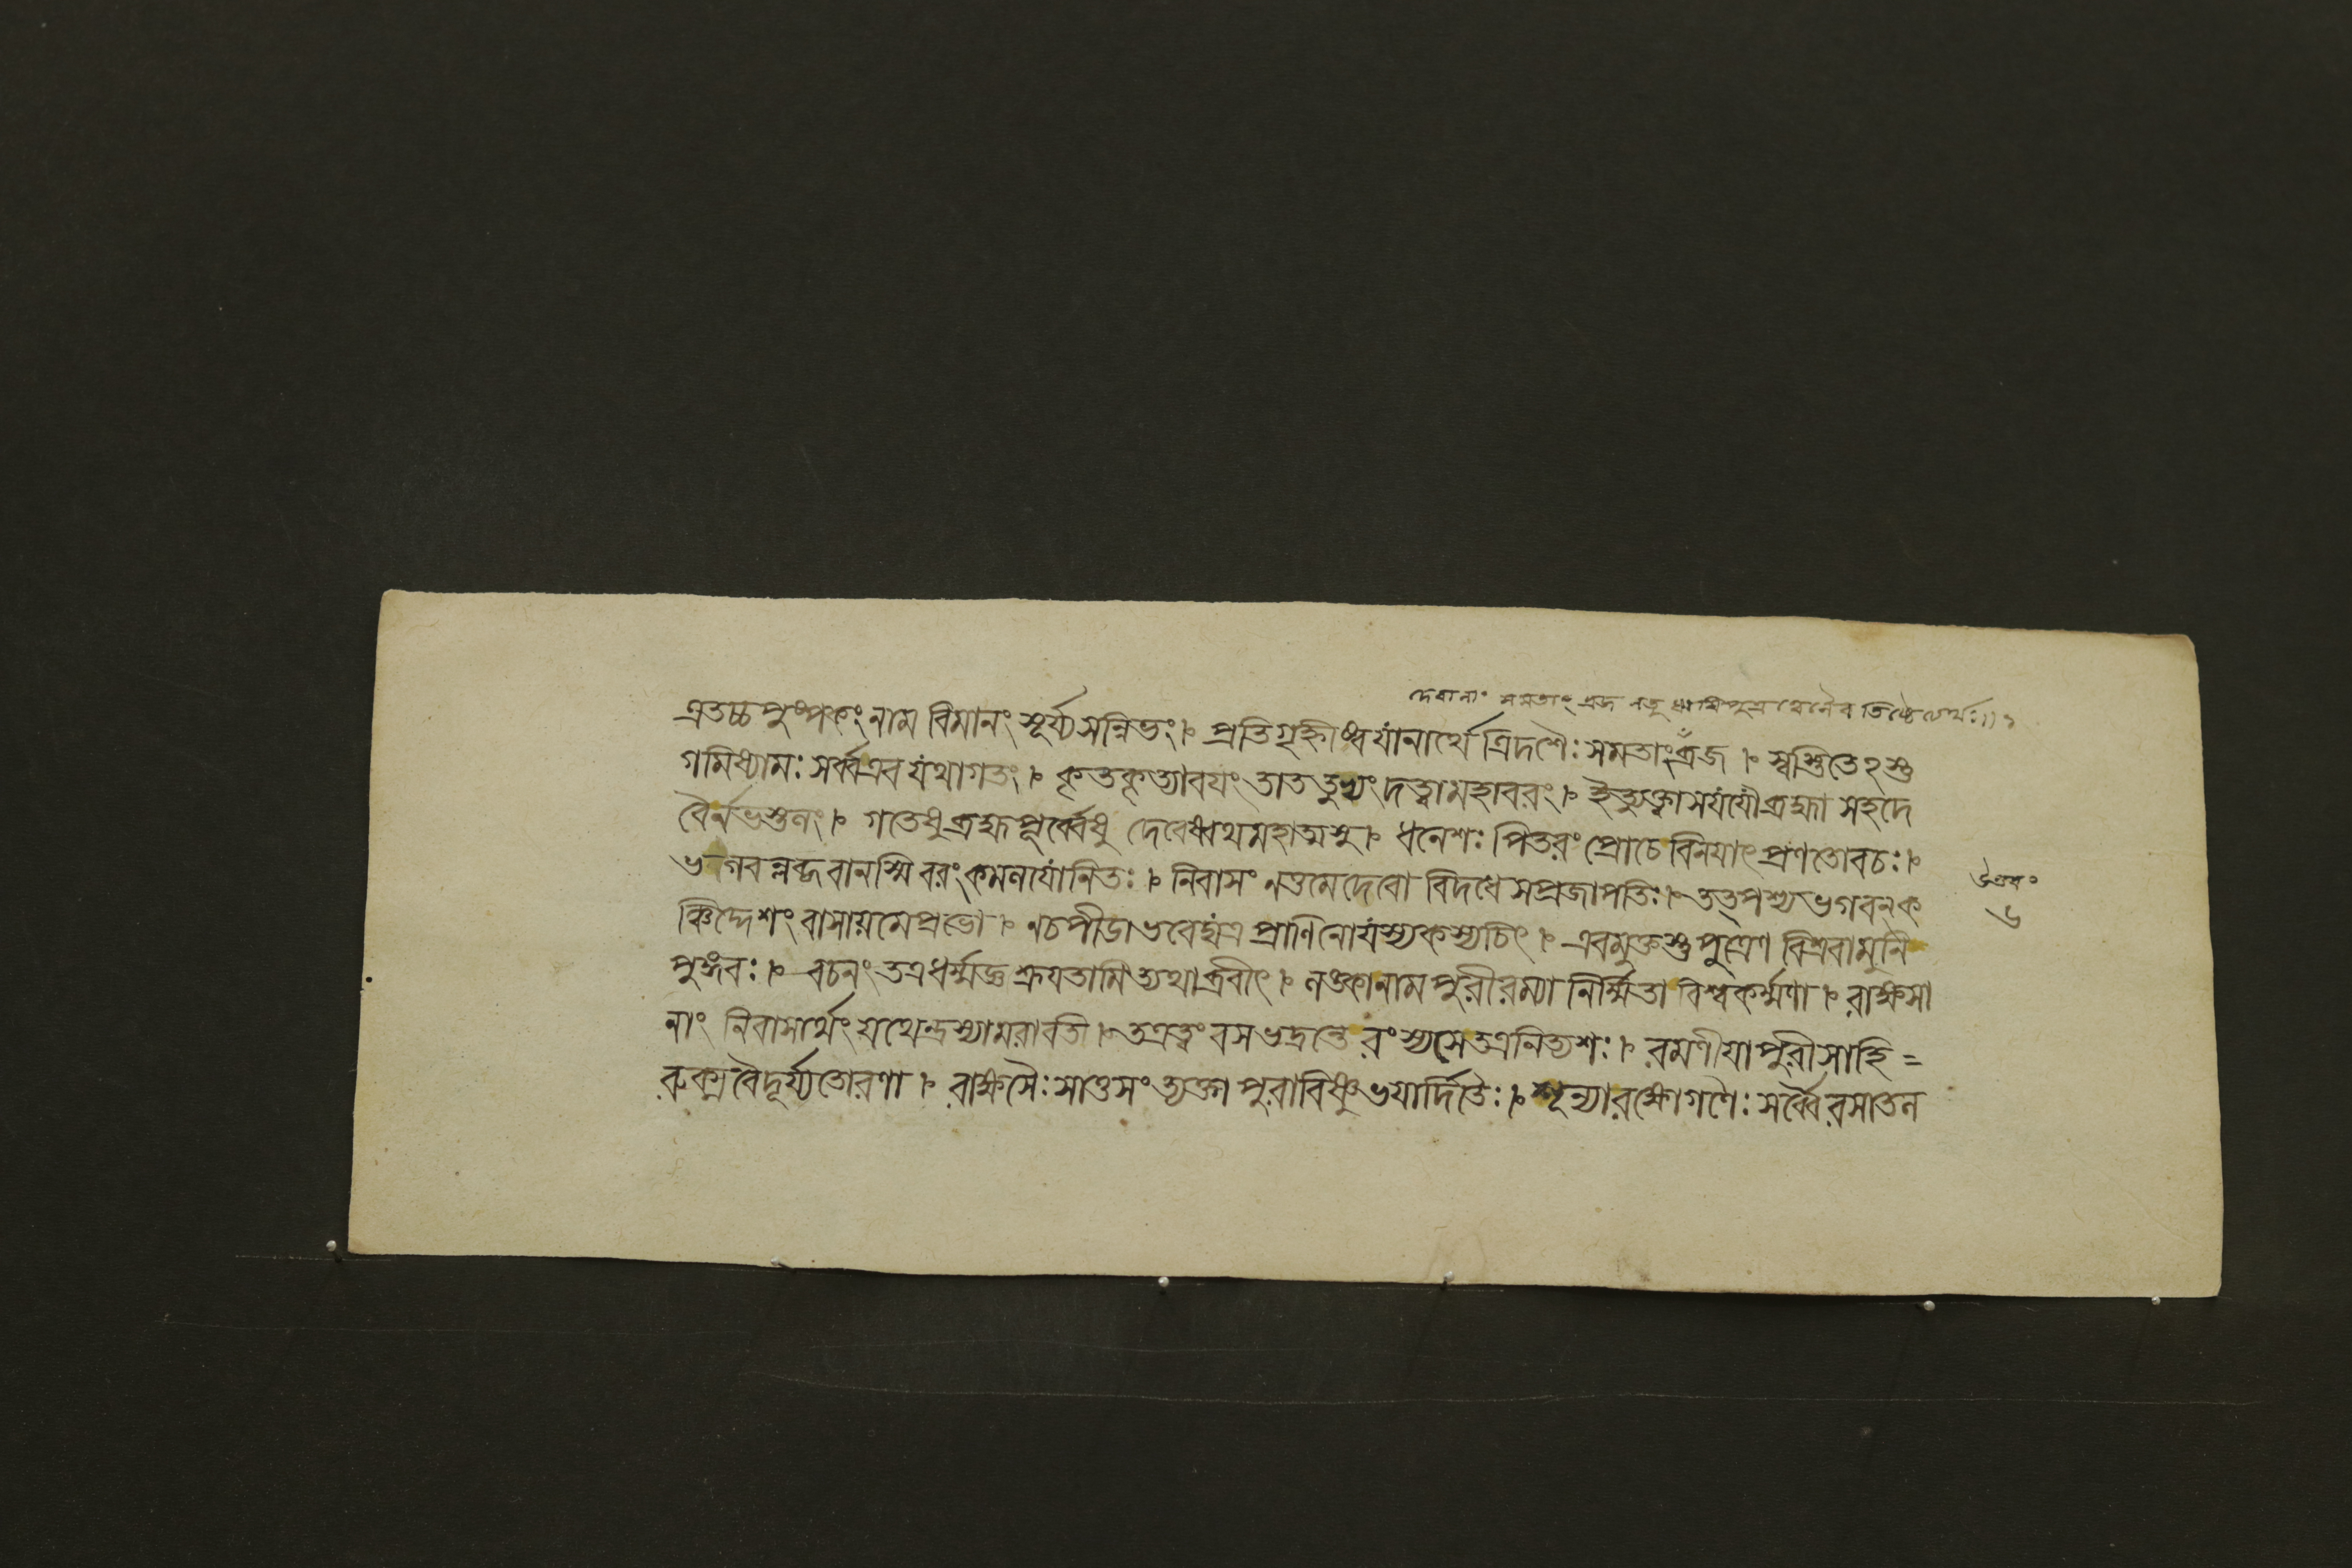 দেবানাং সমতাং ব্রজ
এতচ্চ পুষ্পকং নাম বিমানং সূর্য্যসন্নিভং । প্রতিগৃহ্নীষ্ব যানার্থে ত্রিদশৈঃ সমতাং ব্রজ । স্বস্তিতেঽস্তু
গমিষ্যামঃ সর্ব্বএব যথাগতং । কৃতকৃত্যাবয়ং তাত তুভ্যং দত্ত্বা মহাবরং । ইত্যুক্ত্বা সযযৌ ব্রহ্মা সহদে
বৈর্নভস্তলং । গতেষু ব্রহ্মপূর্ব্বেষু দেবেষ্বথ মহাত্মসু । ধনেশঃ পিতরং প্রোচে বিনয়াৎ প্রণতোবচঃ ।
ভগবন্লব্ধবানস্মি বরং কমলযোনিতঃ । নিবাসং নতুমেদেবো বিদধে সপ্রজাপতিঃ । তত্পশ্য ভগবন্ক
ঞ্চিদ্দেশং বাসায়মেপ্রভো । নচপীডা ভবেদ্যত্র প্রাণিনোযস্যকস্যচিৎ । এবমুক্তস্তু পুত্রেণ বিশ্রবামুনি
পুঙ্গবঃ । বচনং তত্রধর্ম্মজ্ঞ শ্রূয়তামিত্যথাব্রবীৎ । লঙ্কানাম পুরীরম্যা নির্ম্মিতা বিশ্বকর্ম্মণা । রাক্ষসা
নাং নিবাসার্থং যথেন্দ্রস্যামরাবতি । তত্রত্বং বস ভদ্রন্তে রংস্যসেতত্রনিত্যশঃ । রমণীয়াপুরীসাহি =
রুক্মবৈদূর্য্যতোরণা । রাক্ষসৈঃ সাতুসংত্যক্তা পুরাবিষ্ণুভয়ার্দ্দিতৈঃ । শূন্যারক্ষোগণৈঃ সর্ব্বৈরসাতল
উত্তরং
৬